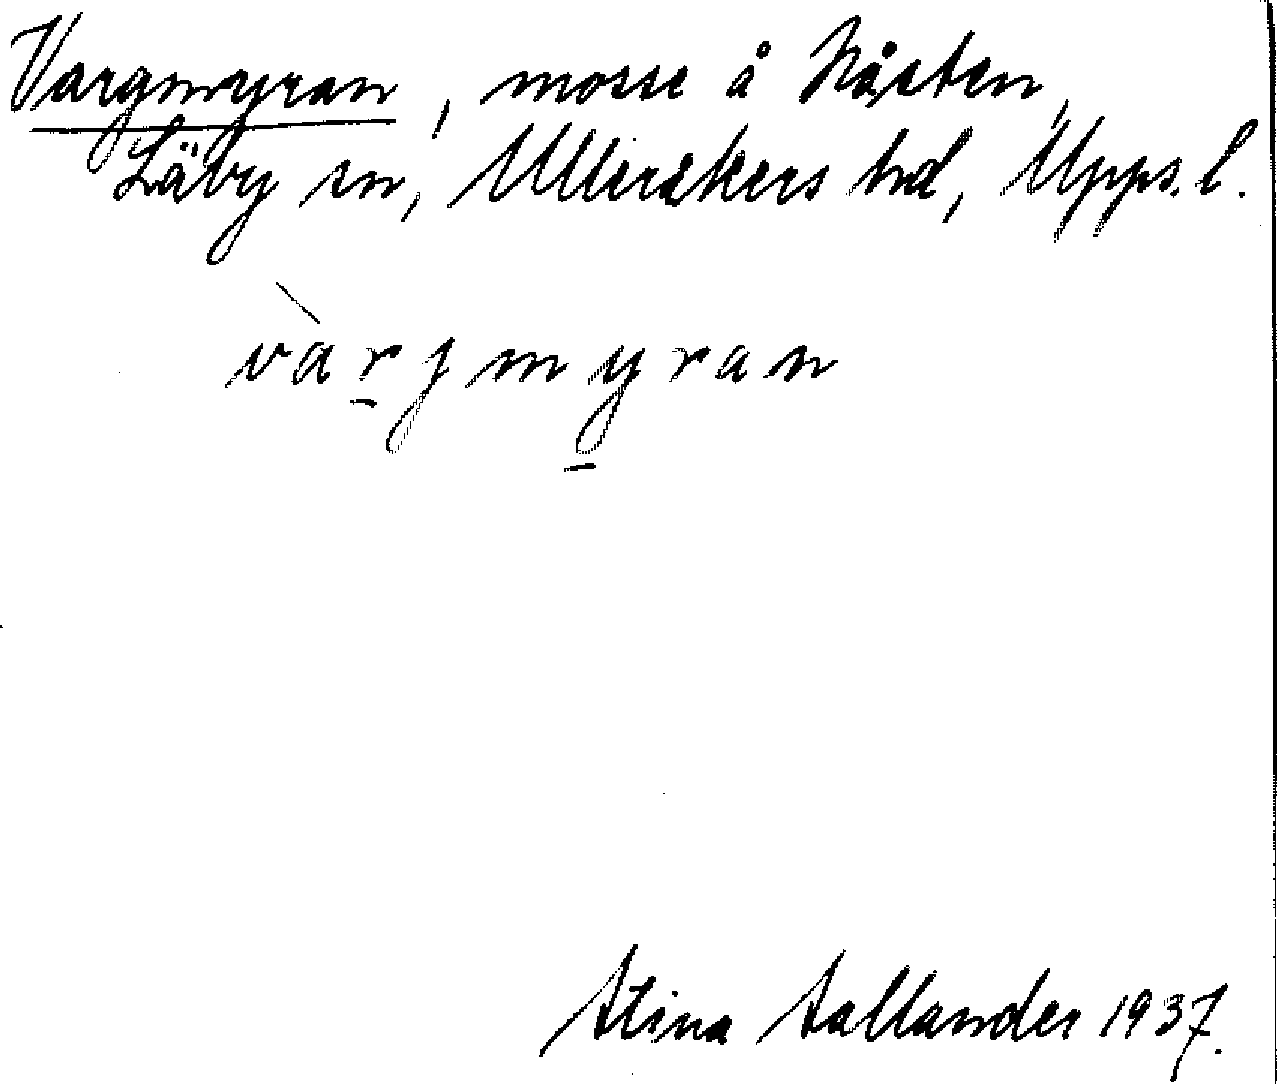 Vargmyran, mosse å Nåsten,
Läby sn, Ulleråkers hd, Upps. l.
vàrjmyran
Stina Sallander 1937.